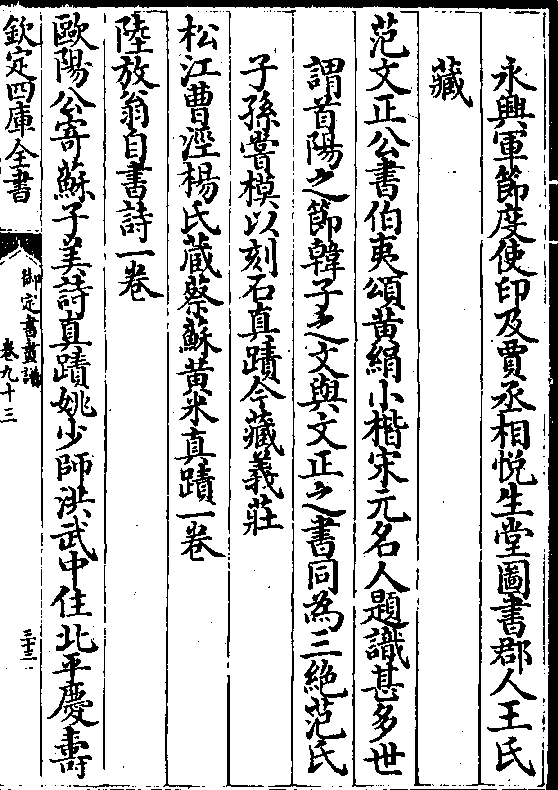 永興軍節度使印及賈丞相悦生堂圖書郡人王氏
藏
范文正公書伯夷頌黄絹小楷宋元名人題識甚多世
謂首陽之節韓子之文與文正之書同為三絶范氏
子孫嘗模以刻石真蹟今藏義莊
松江曹涇楊氏藏蔡蘇黄米真蹟一卷
陸放翁自書詩一卷
歐陽公寄蘇子美詩真蹟姚少師洪武中住北平慶壽
欽定四庫全書
御定書畫譜
卷九十三
三十三